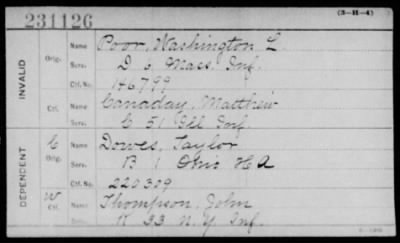 231126 (3-H-4)
INVALID
Orig. Name Poor, Washington L.
Serv. D 6 Mass. Inf.
Ctf. No. 146799
Ctf. Name Canaday, Matthew
Serv. G 51 Ill Inf.
DEPENDENT
C
Orig. Name Dowes, Taylor
Serv. B 1 Ohio H A
Ctf. No. 220309
W
Ctf. Name Thompson, John
K 33 N.Y. Inf.